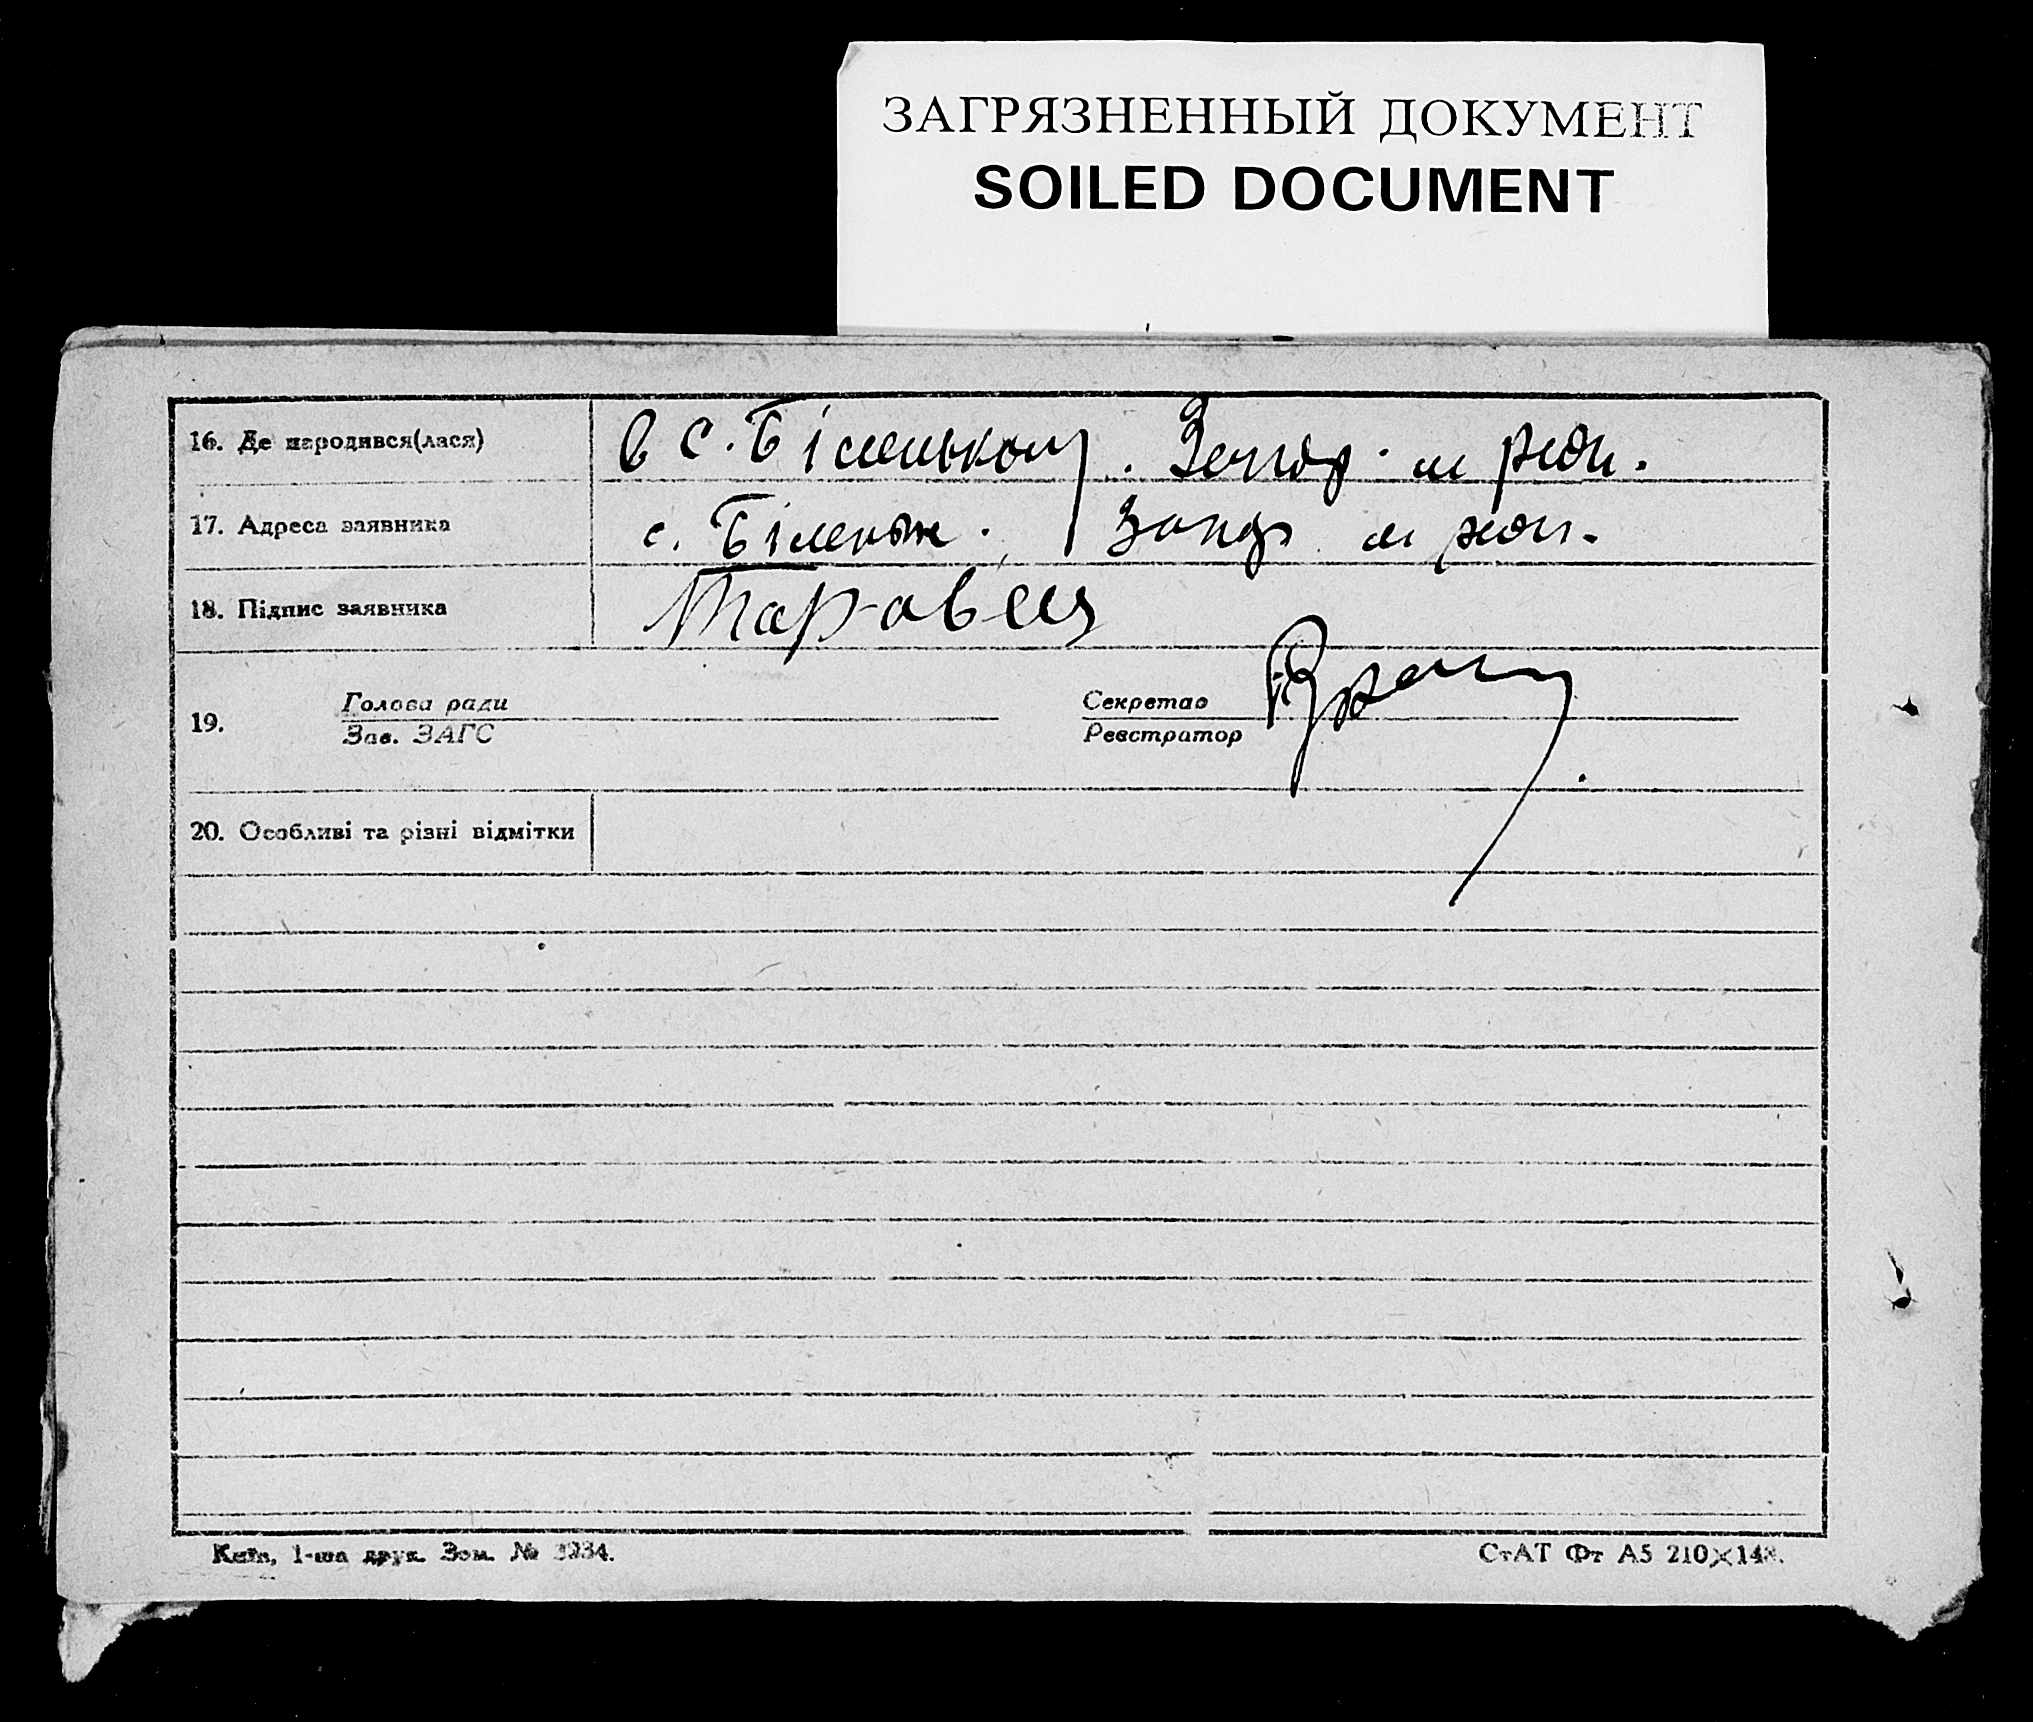 ЗАГРЯЗНЕННЫЙ ДОКУМЕНТ
SOILED DOCUMENT
16. Де народився(лася) в с. Біленькому. Запор. м рай.
17. Адреса заявника с. Біленьке. Запор м рай.
18. Підпис заявника
19. Голова ради Секретар
Зав. ЗАГС Реєстратор
20. Особливі та різні відмітки
Київ, 1-ша друк. Зам. № 3234. СтАТ Фт А5 210×148.